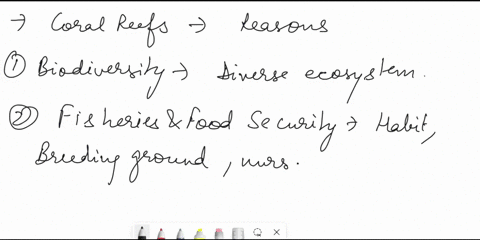 → Coral Reefs → Reasons
① Biodiversity → Diverse ecosystem.
② Fisheries & Food Security → Habit,
Breeding ground, nurs.